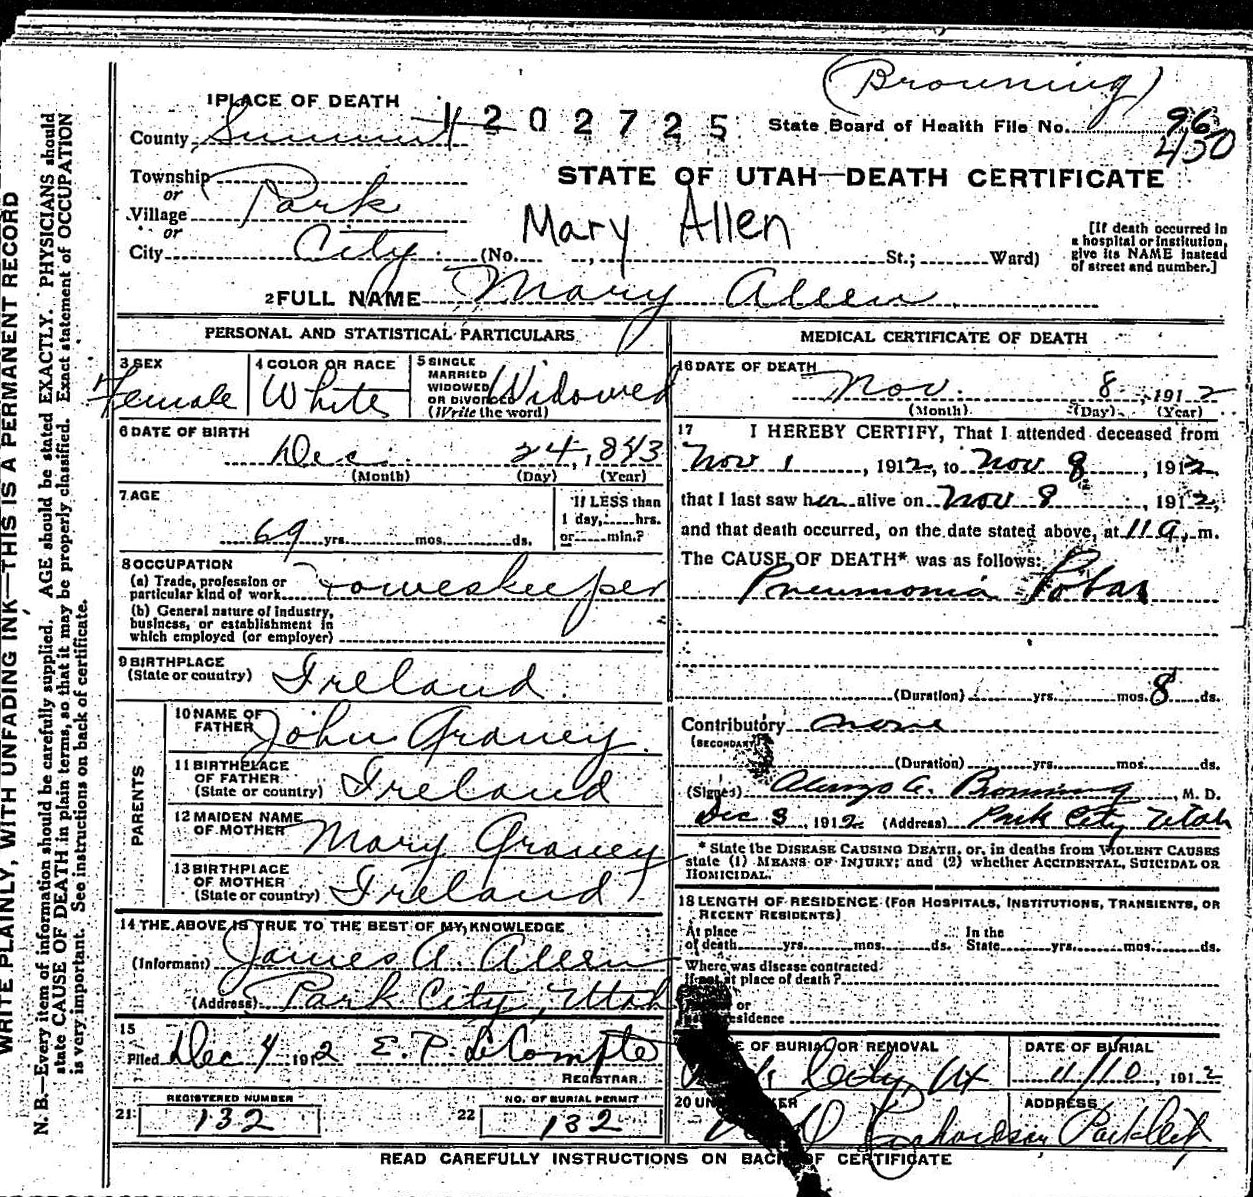 (Browning)
1 PLACE OF DEATH
1202725
State Board of Health File No. 96
450
County Summit
STATE OF UTAH—DEATH CERTIFICATE
Township
or
Village Park
or
City City (No. , St.; Ward)
Mary Allen
[If death occurred in
a hospital or institution,
give its NAME instead
of street and number.]
2 FULL NAME Mary Allen
PERSONAL AND STATISTICAL PARTICULARS
3 SEX
Female
4 COLOR OR RACE
White
5 SINGLE
MARRIED
WIDOWED
OR DIVORCED
(Write the word)
Widowed
6 DATE OF BIRTH
Dec. 24, 1843
(Month) (Day) (Year)
7 AGE
69 yrs. mos. ds.
If LESS than
1 day, hrs.
or min.?
8 OCCUPATION
(a) Trade, profession or
particular kind of work Howeskeeper
(b) General nature of industry,
business, or establishment in
which employed (or employer)
9 BIRTHPLACE
(State or country) Ireland.
PARENTS
10 NAME OF
FATHER John Graney.
11 BIRTHPLACE
OF FATHER
(State or country) Ireland
12 MAIDEN NAME
OF MOTHER Mary Graney
13 BIRTHPLACE
OF MOTHER
(State or country) Ireland
14 THE ABOVE IS TRUE TO THE BEST OF MY KNOWLEDGE
(Informant) James A. Allen
(Address) Park City, Utah
15
Filed Dec 4 1912 E. P. LeCompte
REGISTRAR
REGISTERED NUMBER
21 132
NO. OF BURIAL PERMIT
22 132
MEDICAL CERTIFICATE OF DEATH
16 DATE OF DEATH
Nov. 8, 1912
(Month) (Day) (Year)
17 I HEREBY CERTIFY, That I attended deceased from
Nov 1, 1912, to Nov 8, 1912
that I last saw her alive on Nov 8, 1912,
and that death occurred, on the date stated above, at 11 a. m.
The CAUSE OF DEATH* was as follows:
Pneumonia Lobar
(Duration) yrs. mos. 8 ds.
Contributory none
(SECONDARY)
(Duration) yrs. mos. ds.
(Signed) Browning, M. D.
Dec 3, 1912 (Address) Park City Utah
* State the DISEASE CAUSING DEATH, or, in deaths from VIOLENT CAUSES
state (1) MEANS OF INJURY; and (2) whether ACCIDENTAL, SUICIDAL OR
HOMICIDAL.
18 LENGTH OF RESIDENCE (FOR HOSPITALS, INSTITUTIONS, TRANSIENTS, OR
RECENT RESIDENTS)
At place
of death yrs. mos. ds.
In the
State yrs. mos. ds.
Where was disease contracted
If not at place of death?
or
residence
E OF BURIAL OR REMOVAL
City, Ut
DATE OF BURIAL
11/10, 1912
20 UN KER
Richardson
ADDRESS
Park City
READ CAREFULLY INSTRUCTIONS ON BACK OF CERTIFICATE
WRITE PLAINLY, WITH UNFADING INK—THIS IS A PERMANENT RECORD
N. B.—Every item of information should be carefully supplied. AGE should be stated EXACTLY. PHYSICIANS should
state CAUSE OF DEATH in plain terms, so that it may be properly classified. Exact statement of OCCUPATION
is very important. See instructions on back of certificate.